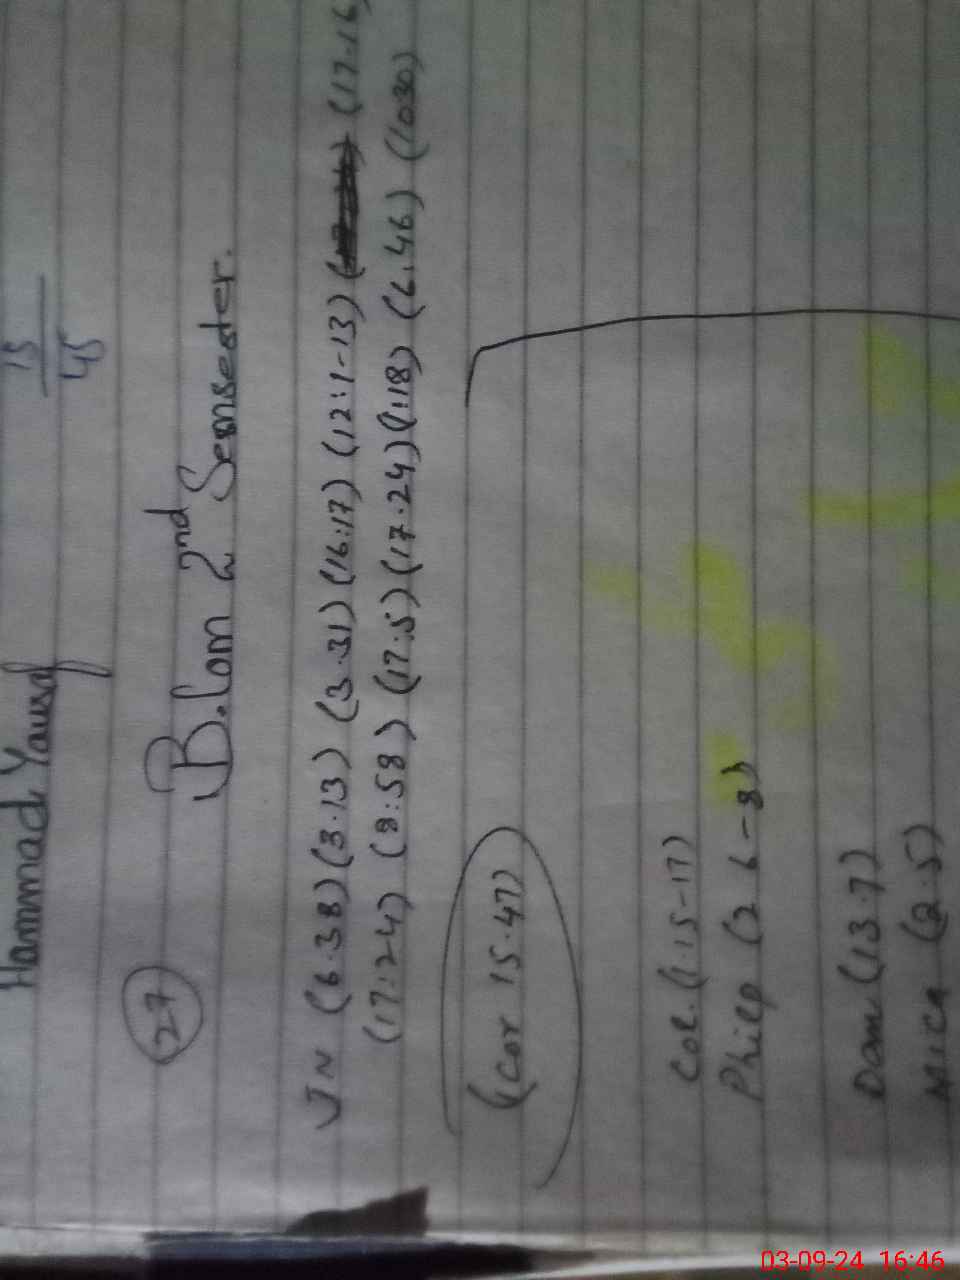 15
45
Hammad Yousaf
27
B.Com 2nd Semsester.
JN (6.38) (3.13) (3.31) (16:17) (12:1-13) (17-16)
(17:24) (8:58) (17:5) (17.24) (1:18) (6.46) (1030)
(Cor 15.47)
Col. (1:15-17)
Philp (2 6-8)
Dan. (13.7)
Mica (2.5)
03-09-24 16:46